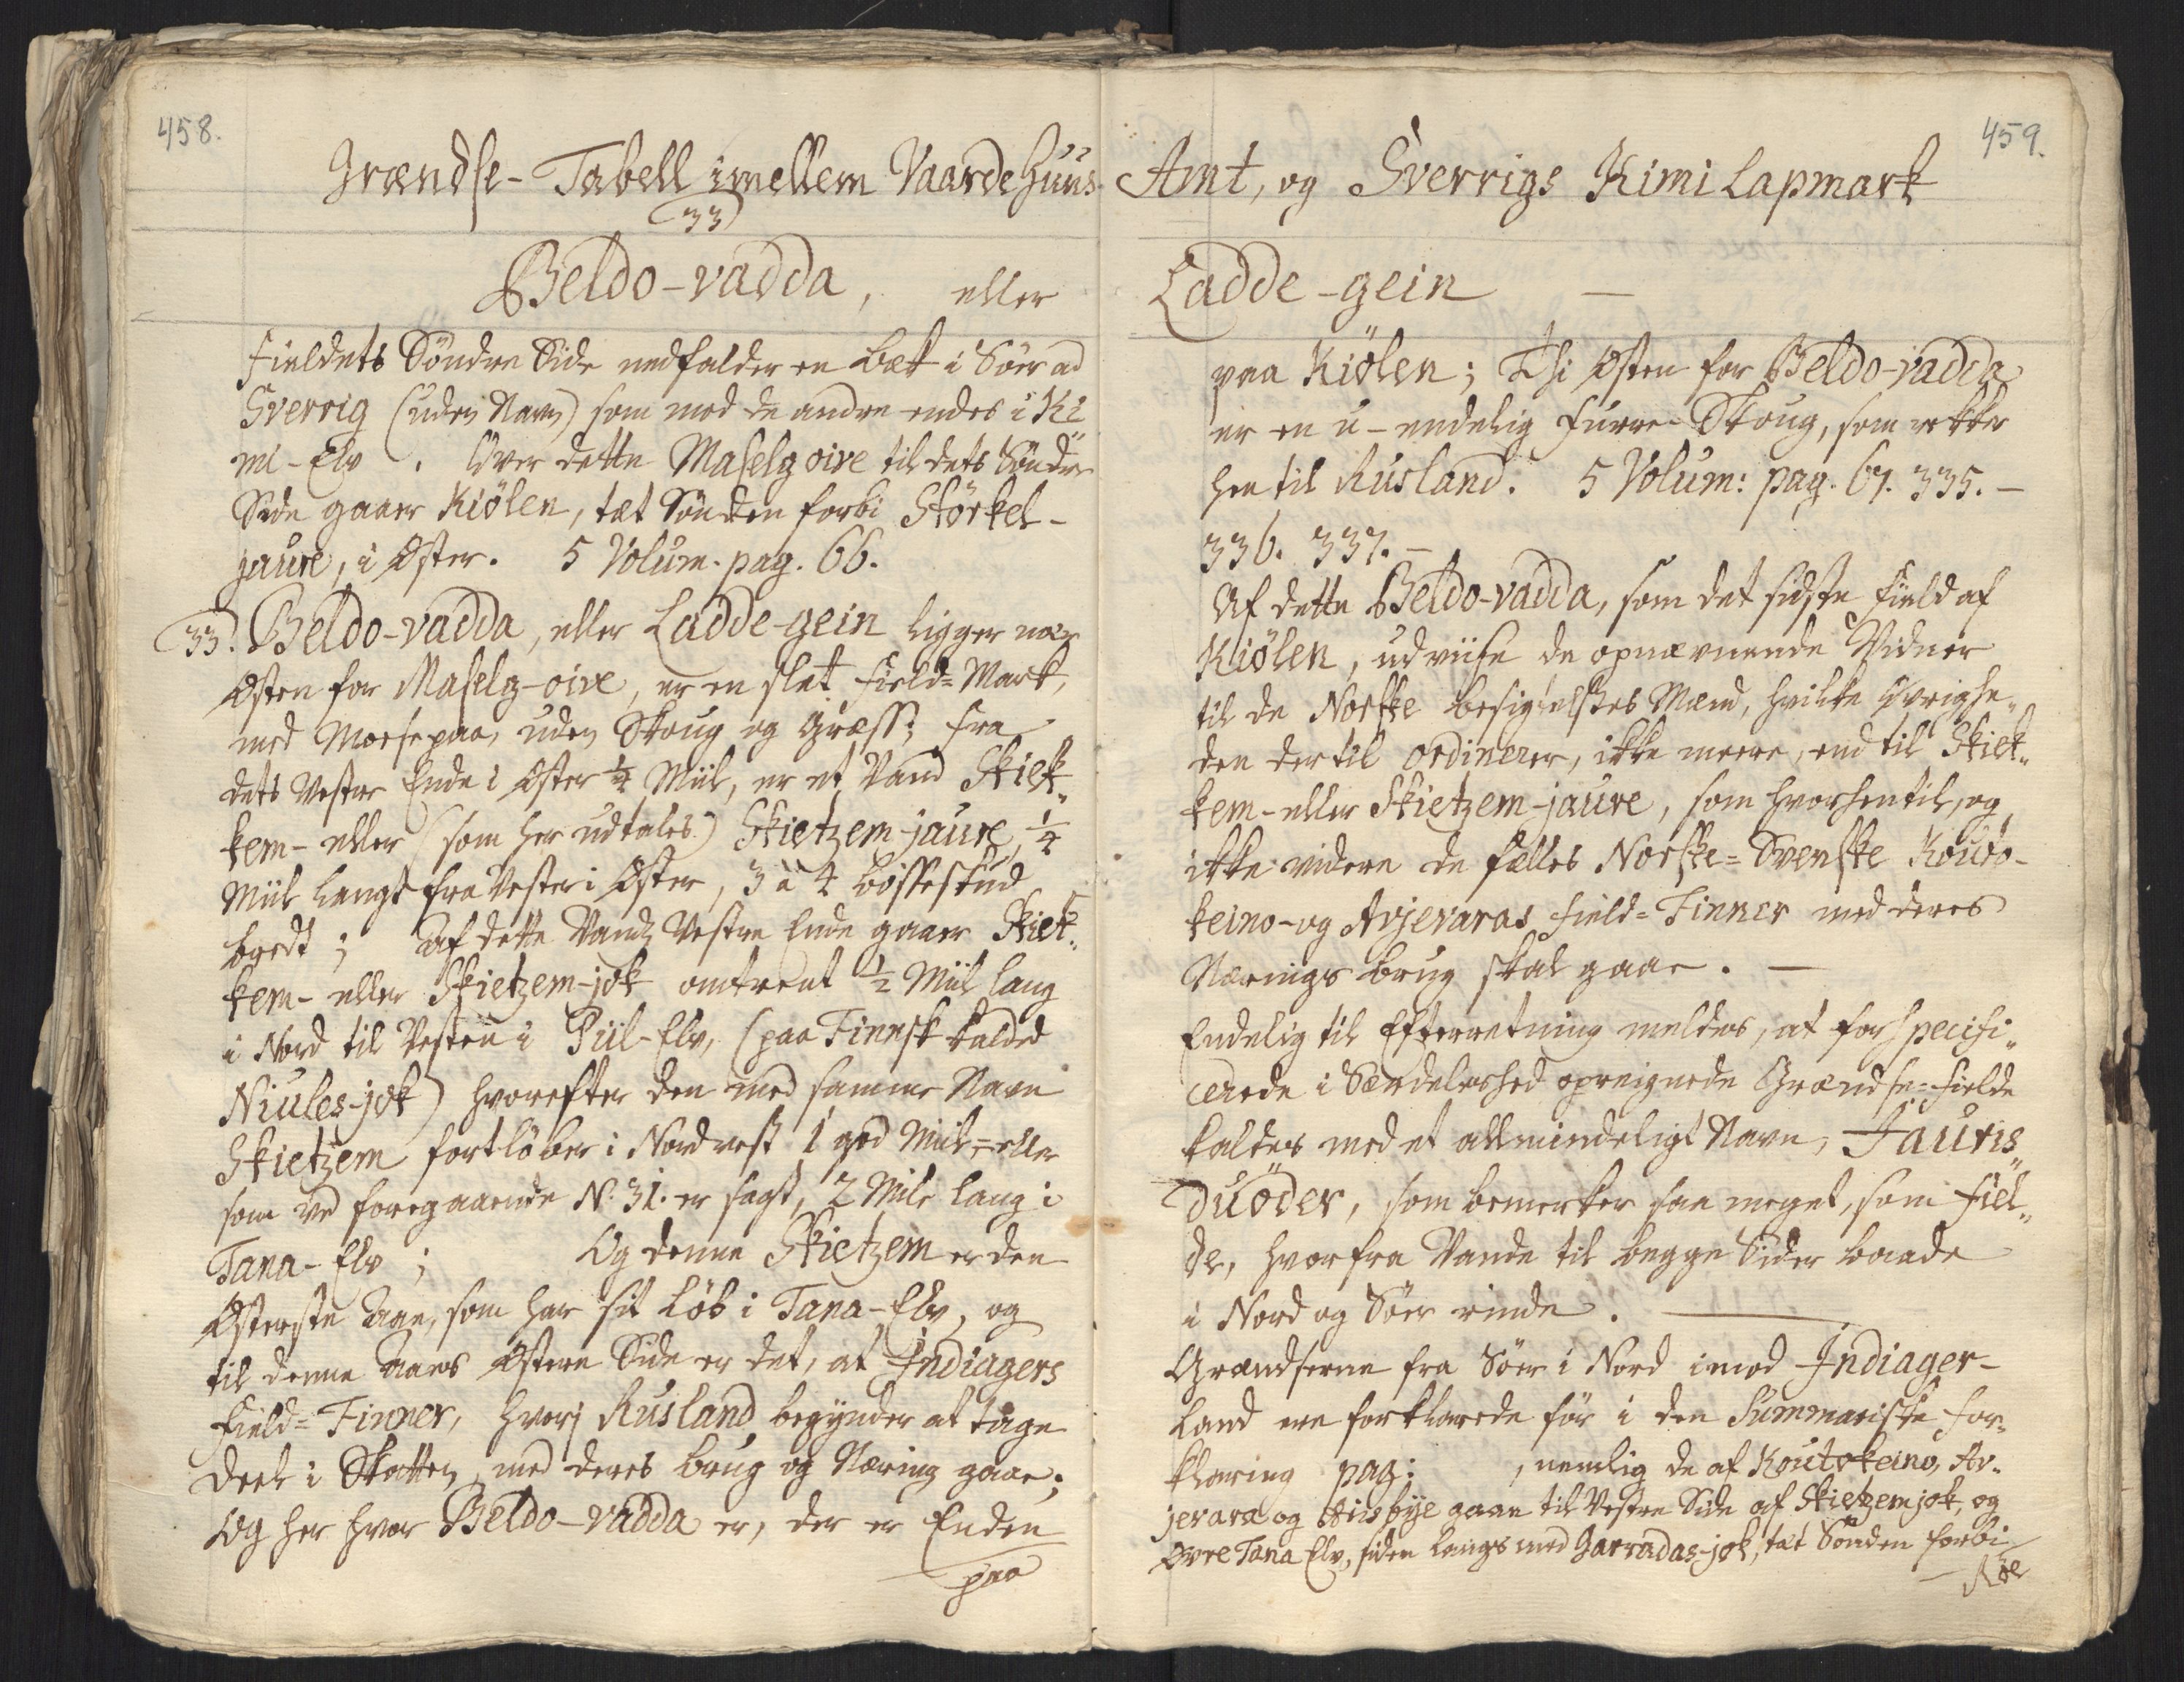 458.
Grændse-Tabell imellem Vaardehuus-
33
Beldo-vadda, eller
Fieldets Söndre Side nedfalder en bæk i Söer ad
Sverrig (uden Navn) som med de andre endes i Ki
mi-Elv. Over dette Maselg oive til dets Söndre
Side gaaer Kiölen, tæt Sönden forbi Störkel-
jaure, i Öster. 5 Volum. pag. 66.
33. Beldo-vadda, eller Ladde-gein ligger nær
Östen for Maselg-oive, er en slet Field-Mark,
med Moese paa, uden Skoug og Græss; fra
dets Vester Ende i Öster ¼ Miil, er et Vand Skiek„
kem- eller (som her udtales) Skietzem-jaure, ¼
Miil langt fra Vester i Öster, 3 à 4 bösseskud
bredt; Af dette Vands Vestre Ende gaaer Skiek„
kem- eller Skietzem-jok omtrent ½ Miil lang
i Nord til Vesten i Piil-Elv, (paa Finnsk kalded
Niules-jok) hvorefter den med samme Navn
Skietzem fortlöber i Nordvest 1 god Miil- eller
som ved foregaaende N. 31. er sagt, 2 Mile lang i
Tana-Elv; Og denne Skietzem er den
Österste Aae, som har sit Löb i Tana-Elv, og
til denne Aaes Östere Side er det, at Indiagers
Field-Finner, hvorj Rusland begynder at tage
Deel i Skatten, med deres brug og Næring gaae;
Og her hvor Beldo-vadda er, der er Enden
paa
459.
Amt, og Sverrigs Kimi Lapmark
Ladde-gein —
paa Kiölen; Thi Östen for Beldo-vadda
er en u-endelig Furre-Skoug, som rekker
hen til Rusland. 5 Volum: pag. 67. 335. –
336. 337. –
Af dette Beldo-vadda, som det sidste Field af
Kiölen, udviise de opnævnende Vidner
til de Norske besigtelses Mænd, hvilke Övrighe„
den dertil ordinerer, ikke meere, end til Skiek„
kem- eller Skietzem-jaure, som hvorhentil, og
ikke videre de fælles Norske-Svenske Kouto-
keino- og Avjevaras Field-Finner med deres
Nærings brug skal gaae. —
Endelig til Efterretning meldes, at for specifi„
cerede i Særdeleshed opreignede Grændse-Fielde
kaldes med et allmindeligt Navn, Jauris„
duöder, som bemerker saa meget, som Fiel„
de, hvorfra Vande til begge Sider baade
i Nord og Söer rinde. —
Grændserne fra Söer i Nord imod Indiager-
Land ere forklarede för i den Summariske For„
klaring pag: , nemlig de af Koutokeino, Av„
jevara og Aiisbye gaae til Vestre Side af Skietzemjok, og
Övre Tana Elv, siden langs med Garradas-jok, tæt Sönden forbi